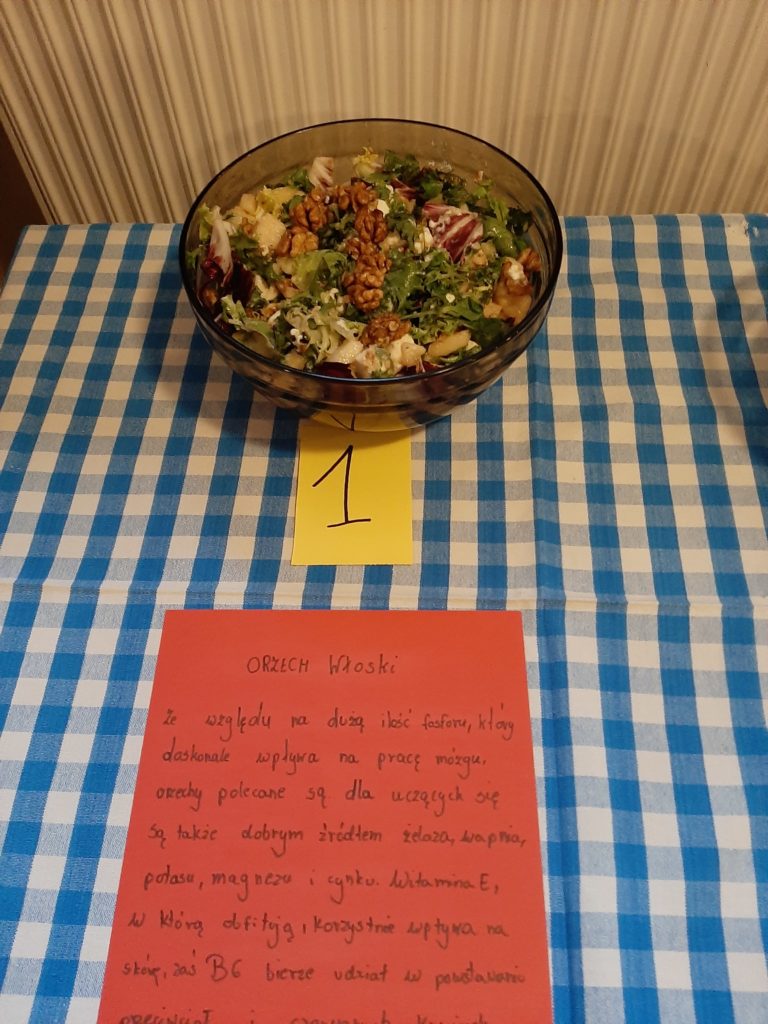 1
ORZECH Włoski
Ze względu na dużą ilość fosforu, który
doskonale wpływa na pracę mózgu,
orzechy polecane są dla uczących się
są także dobrym źródłem żelaza, wapnia,
potasu, magnezu i cynku. Witamina E,
w którą obfitują, korzystnie wpływa na
skórę, zaś B6 bierze udział w powstawaniu
przeciwciał i czerwonych